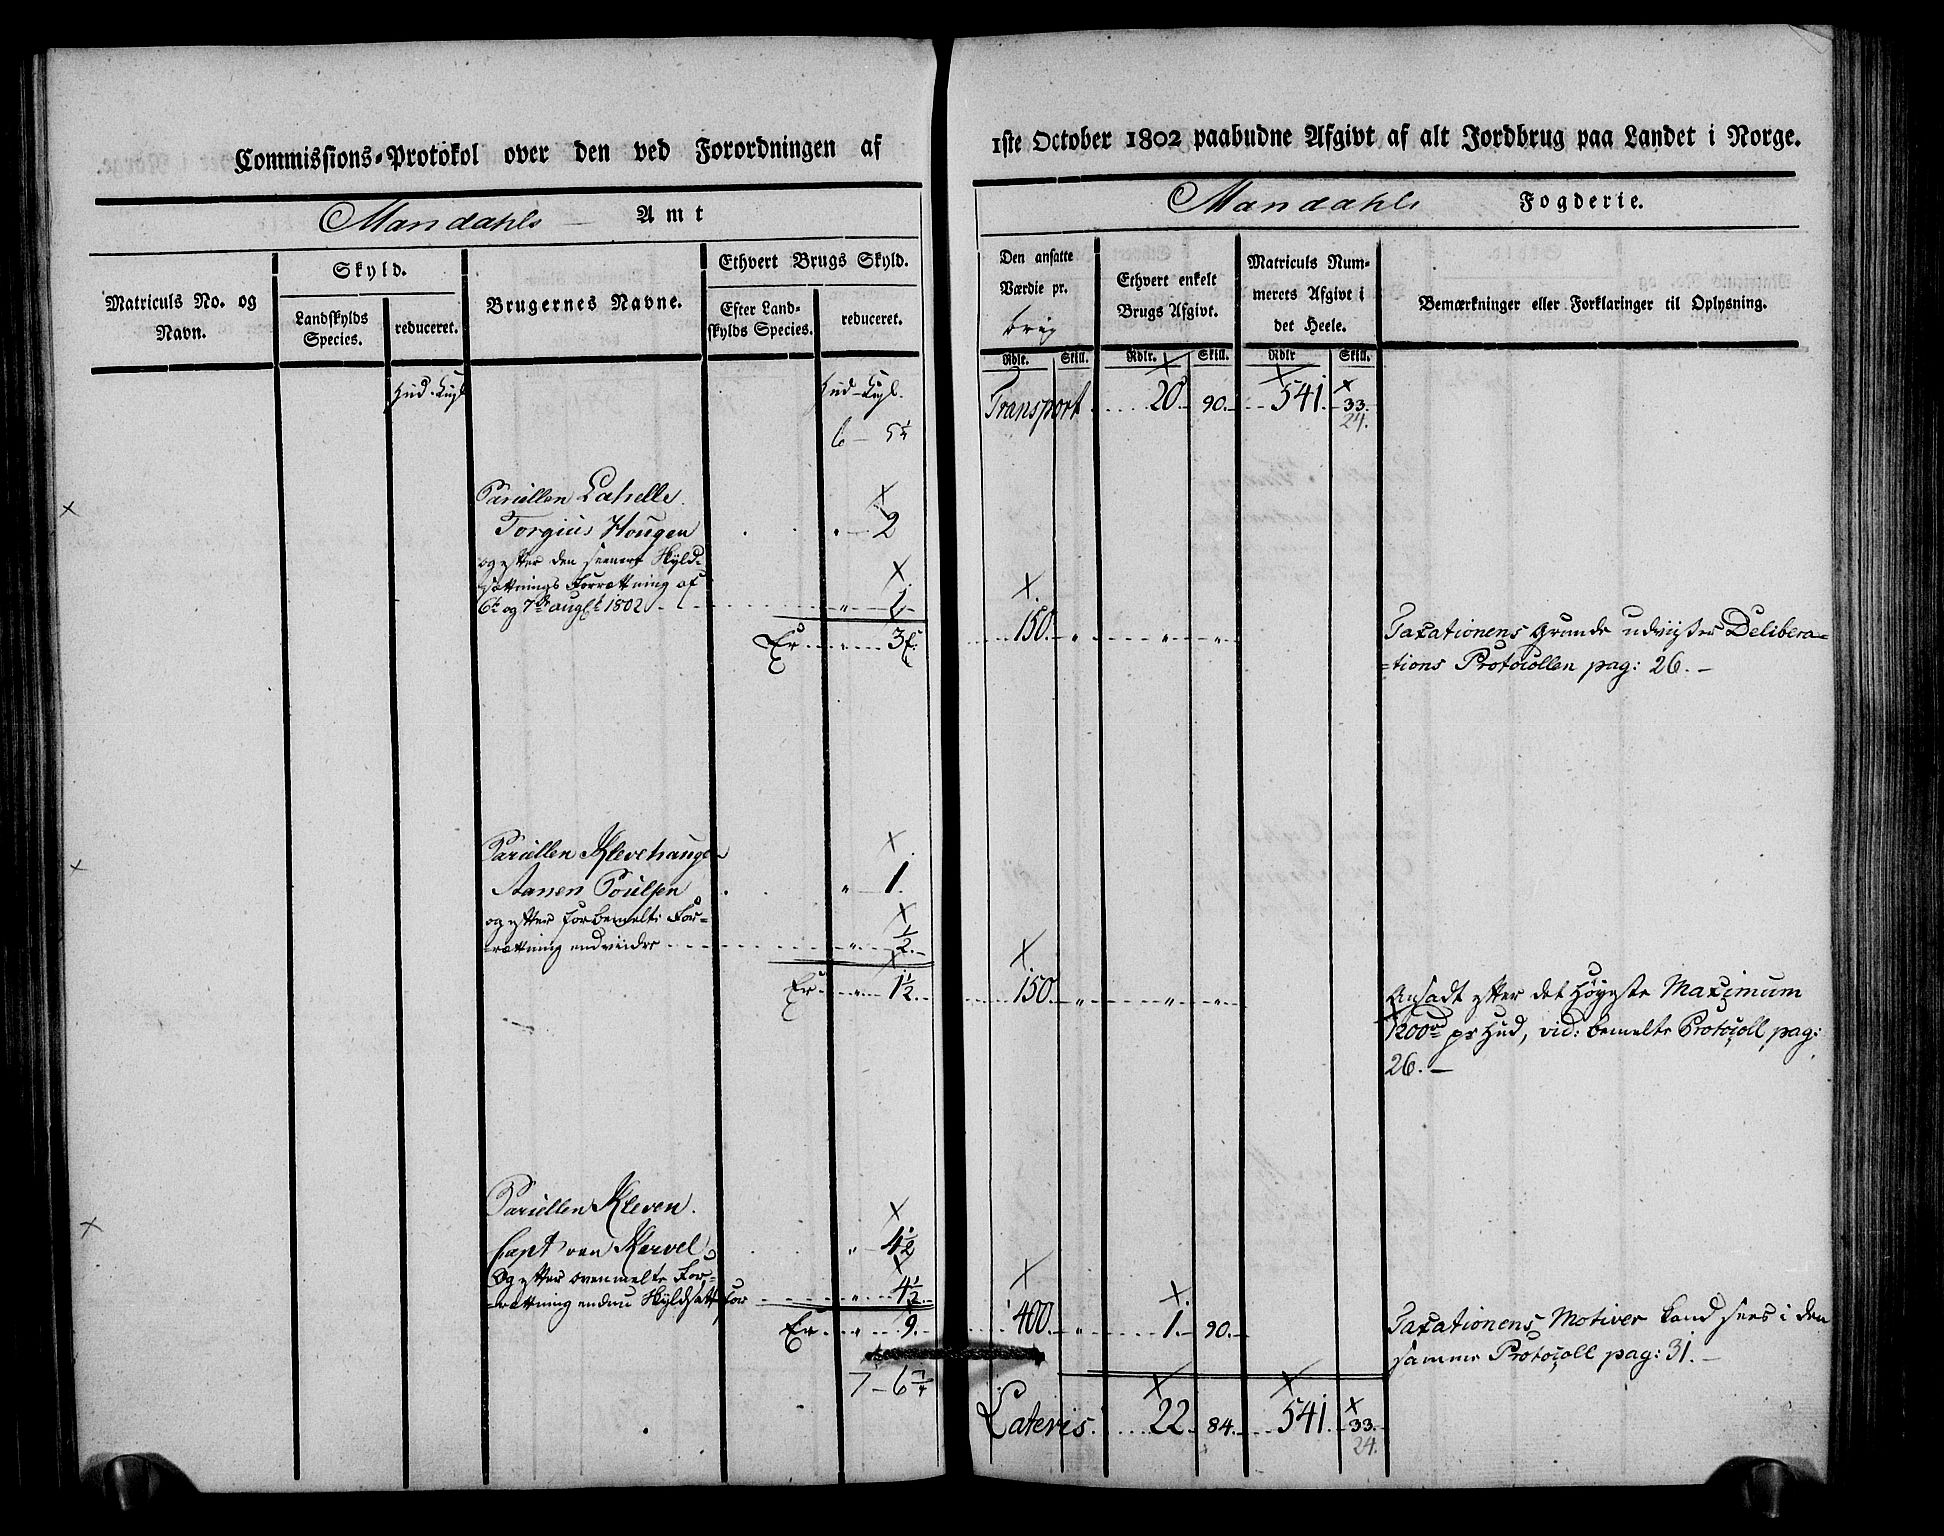 Commissions-Protokol over den ved Forordningen af
Mandahls Amt
Matriculs No. og Navn.
Skyld.
Landskylds Species.
reduceret.
Brugernes Navne.
Ethvert Brugs Skyld.
Efter Landskylds Species.
reduceret.
Hud
Hud
6 - 5¼
Parcellen Lahelle.
Torgius Hougen
2
og efter den
sættnings Forrættning af
6te og 7de augst 1802
Er 3
Parcellen Klevehaugen
Aanen Poulsen
1.
og efter forbemelte For-
rættning endvidre
½.
Er 1½
Parcellen Kleven.
Capt van Kervel
4½
Og efter ovenmelte For-
rættning endnu Skyldsatt for
4½
Er 9.
7 - 6¾
1ste October 1802 paabudne Afgivt af alt Jordbrug paa Landet i Norge.
Mandahls Fogderie.
Den ansatte Værdie pr.
Ethvert enkelt Brugs Afgivt.
Matriculs Nummerets Afgivt i det Heele.
Bemærkninger eller Forklaringer til Oplysning.
Rdlr. Skill. Rdlr. Skill. Rdlr Skill.
Transport 20. 90. 541. 33.
24.
150. " " "
Taxationens Grunde udviser Delibera-
tions Protocollen pag: 26.
150. " " "
Ansadt efter det Høyeste Maximum
1200rd pr Hud, vid: bemelte Protocoll pag:
26.
400. " 1. 90.
Taxationens Motiver kand sees i den
samme Protocoll pag: 31.
Lateris 22. 84. 541. 33.
24.